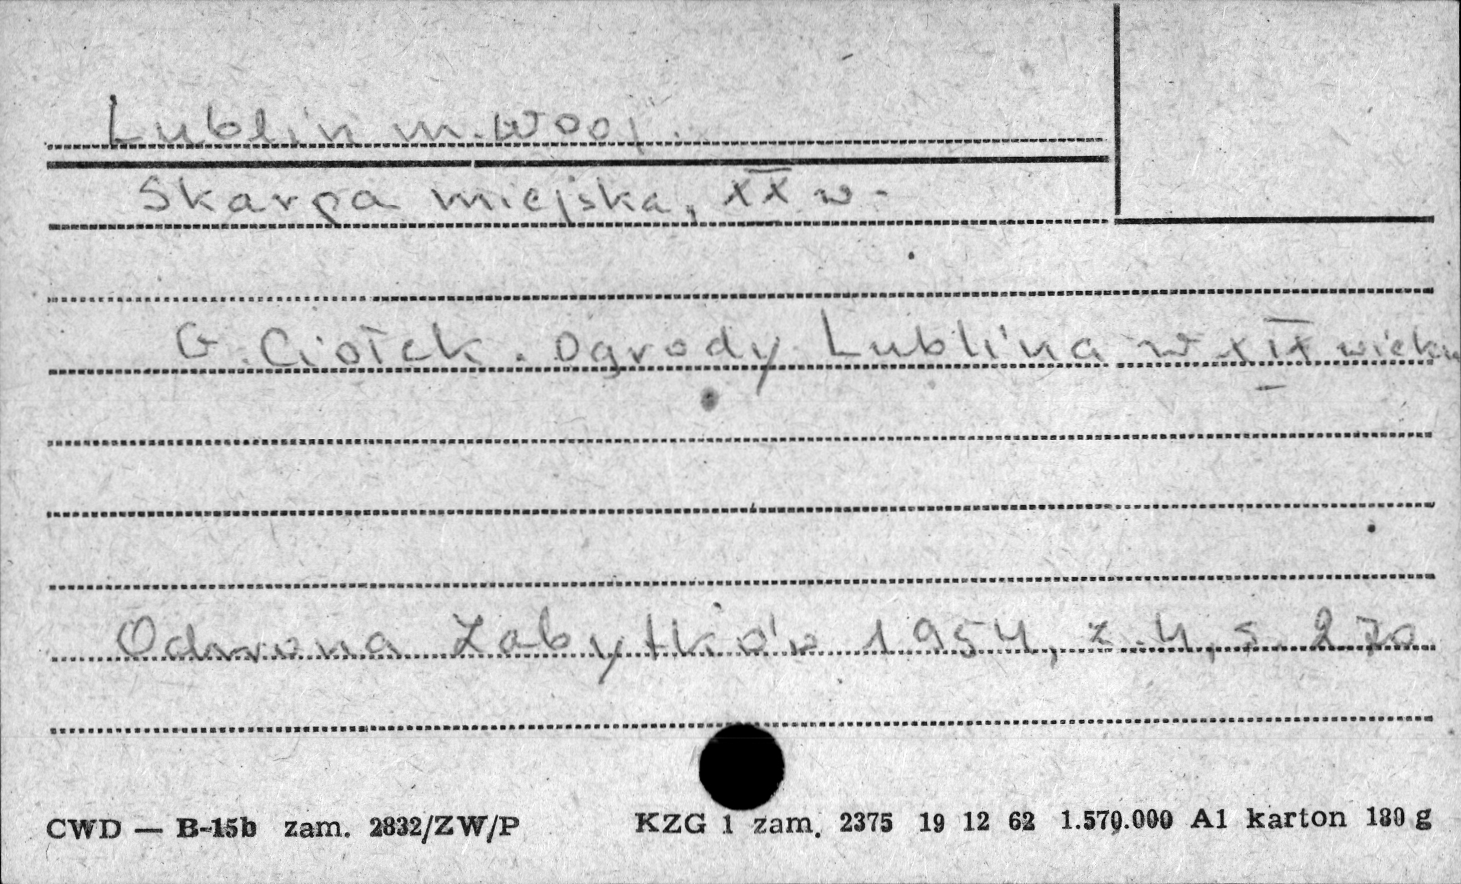 Lublin m. woj.
Skarpa miejska, XX w.
G. Ciołek. Ogrody Lublina w XIX wieku
Ochrona Zabytków 1954, z. 4, s. 270
CWD — B-15b zam. 2832/ZW/P KZG 1 zam. 2375 19 12 62 1.570.000 A1 karton 180 g